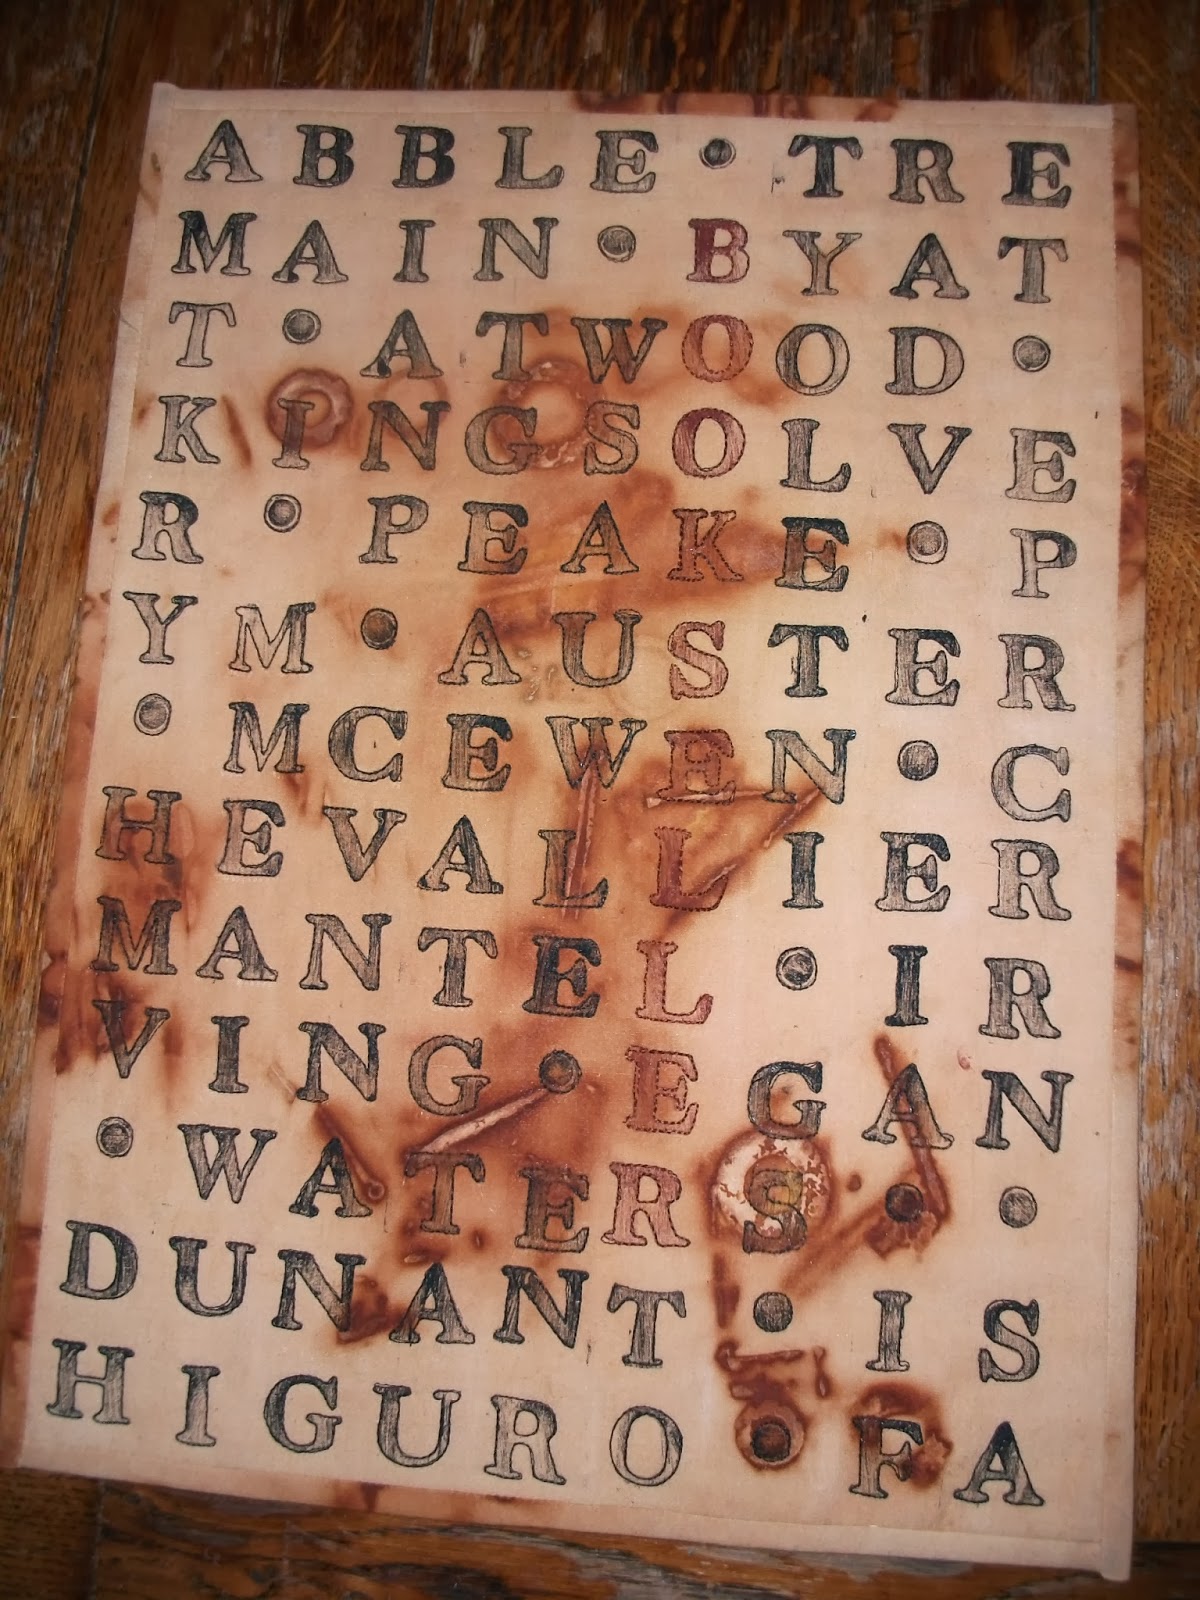 ABBLE•TRE
MAIN•BYAT
T•ATWOOD•
KINGSOLVE
R•PEAKE•P
YM•AUSTER
•MCEWEN•C
HEVALLIER
MANTEL•IR
VING•EGAN
•WATERS••
DUNANT•IS
HIGURO•FA